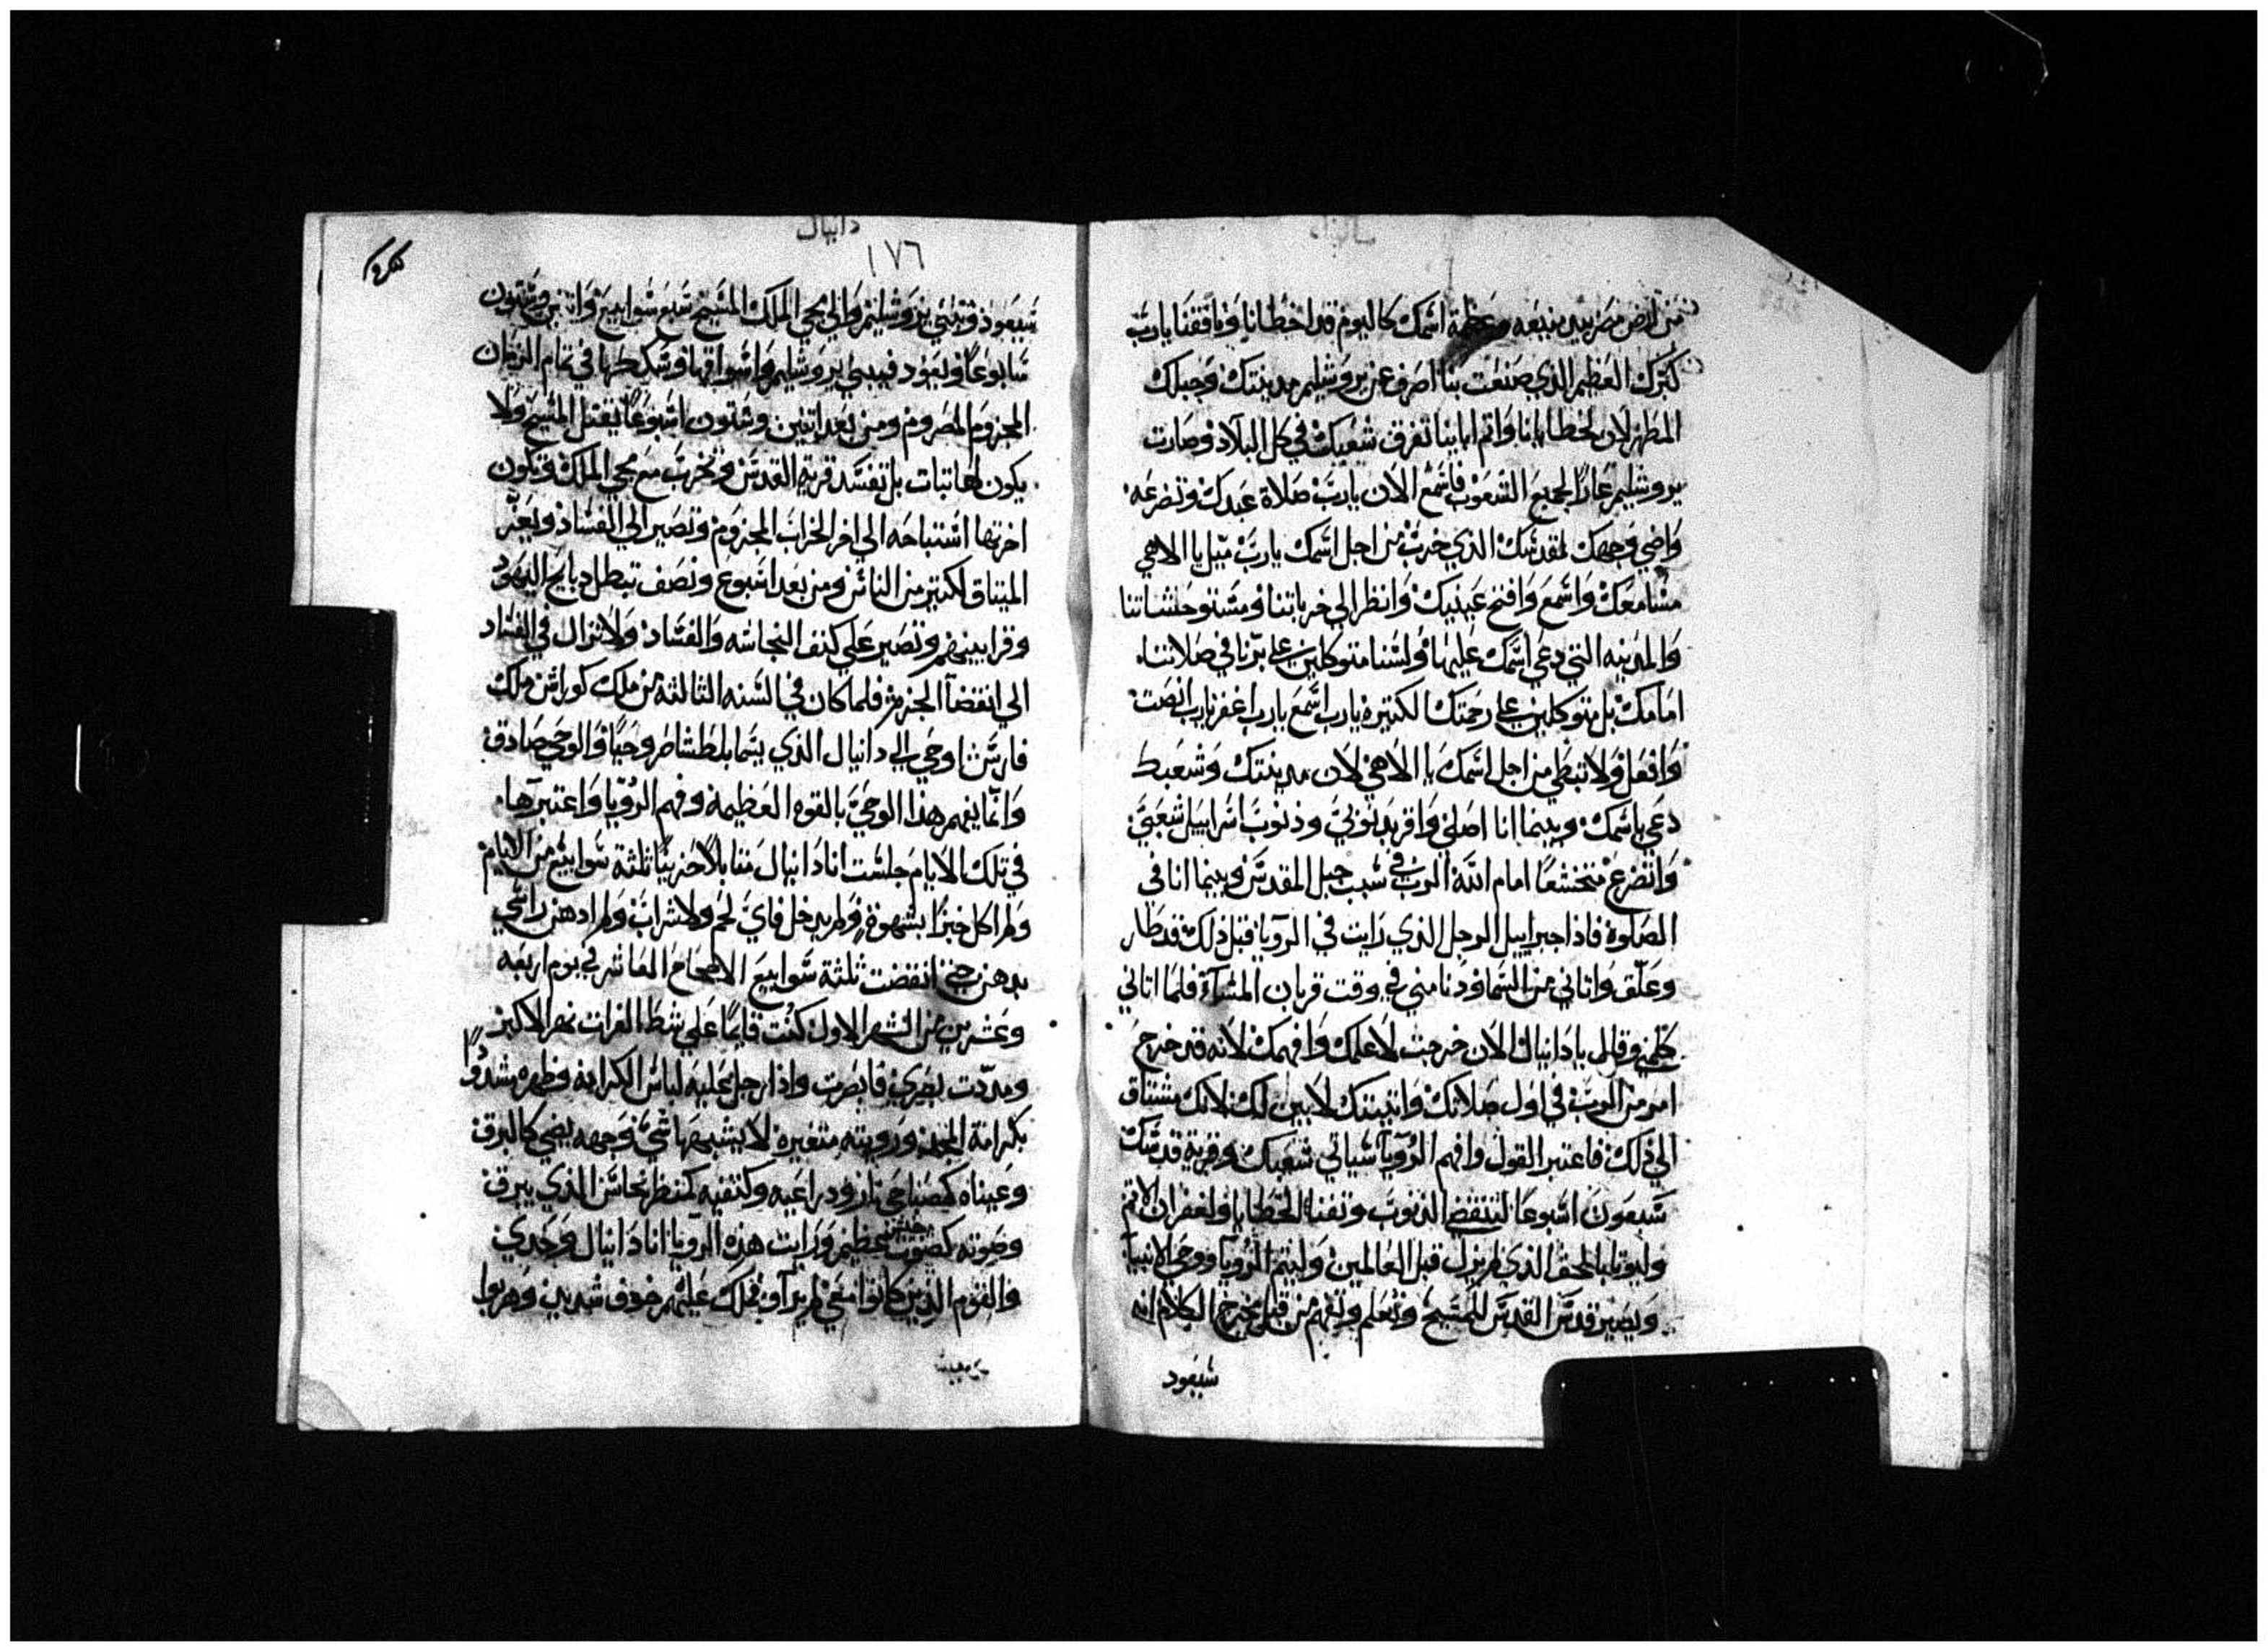 من ارض مصر بيد منيعه وعظمة اسمك كاليوم قد اخطانا ونافقنا يارب
كبرك العظيم الذي صنعت بنا اصرف عن يروشليم مدينتك وجبلك
المطهر لان لخطايانا واثم اباينا تفرق شعبك في كل البلاد وصارت
يروشليم عارًا لجميع الشعوب فاسمع الان يارب صلاة عبدك وتضرعه
واضي وجهك لمقدسك الذي خرب من اجل اسمك يارب ميل يا الاهي
مسامعك واسمع وافتح عينيك وانظر الي خرباتنا
والمدينه التي دعي اسمك عليها ولسنا متوكلين علي برنا في صلاتنا
امامك بل متوكلين علي رحمتك الكتيرة يارب اسمع يارب اغفر يارب انصت
وافعل ولا تبطي من اجل اسمك يا الاهي لان مدينتك وشعبك
دعي باسمك وبينما انا اصلي واقر بدنوبي وذنوب اسراييل شعبي
واتضرع متخشعًا امام الله الرب في سبب جبل المقدس وبينما انا في
الصلوة فاذا جبراييل الرجل الذي رايت في الرويا قبل ذلك قد طار
وعلق واتاني من السما ودنا مني في وقت قربان المسآء فلما اتاني
كلمني وقال يا دانيال الان خرجت لاعلمك وافهمك لانه قد خرج
امر من الرب في اول صلاتك واتيتك لابين لك لانك مشتاق
الي ذلك فاعتبر القول وافهم الرويا سياتي شعبك وقرية قدسك
سبعون اسبوعًا لتنقضي الذنوب وتفنا الخطايا ولغفران الاثم
وليوتا بالحق الذي لم يزل قبل العالمين وليتم الرويا ووحي الانبيا
ويصير قدس القدس للمسيح وتعلم وتفهم من قبل مخرج الكلام انه
شيعود
دانيال
١٧٦
شيعود وتبني يروشليم والي مجي الملك المسيح سبع سوابيع واتنين وستون
سابوعًا ويعود فيبني يروشليم واسواقها وسككها في تمام الزمان
المجزوم المصروم ومن بعد اتنين وستون اسبوعًا يقتل المسيح ولا
يكون لها تبات بل تفسد قرية القدس وتخرب مع مجي الملك وتكون
اخرتها استباحه الي اخر الخراب المجزوم وتصير الي الفساد ويعز
الميتاق لكتير من الناس ومن بعد اسبوع ونصف تبطل دبايح اليهود
وقرابينهم وتصير علي كنف النجاسه والفساد ولا تزال في الفساد
الي انقضآ الجزم فلما كان في السنه التالتة من ملك كوراش ملك
فارس اوحي الي دانيال الذي يسما بلطشاصر وحيًا والوحي صادق
وانما يفهم هذا الوحي بالقوه العظيمة وفهم الرويا واعتبرها
في تلك الايام جلست انا دانيال متابلا حزينًا تلتة سوابيع من الايام
ولم اكل خبزا بشهوة ولم يدخل فاي لحم ولا شراب ولم ادهن راسي
بدهن حتي انقضت ثلثة سوابيع الاصحاح العاشر في يوم اربعه
وعشرين من الشهر الاول كنت قايمًا علي شط الفرات نهر الاكبر
ومديت بصري فابصرت واذا رجل عليه لباس الكرامه وظهره مشدودًا
بكرامة المجد ورويته متغيره لا يشبهها شي ووجهه يضي كالبرق
وعيناه كمصباحي نار ودراعيه وكتفيه كمنظر نحاس الذي يبرق
وصوته كصوت جيش عظيم ورايت هذه الرويا انا دانيال وحدي
والقوم الذين كانوا معي لم يرآو ذلك عليهم خوف شديد وهربوا